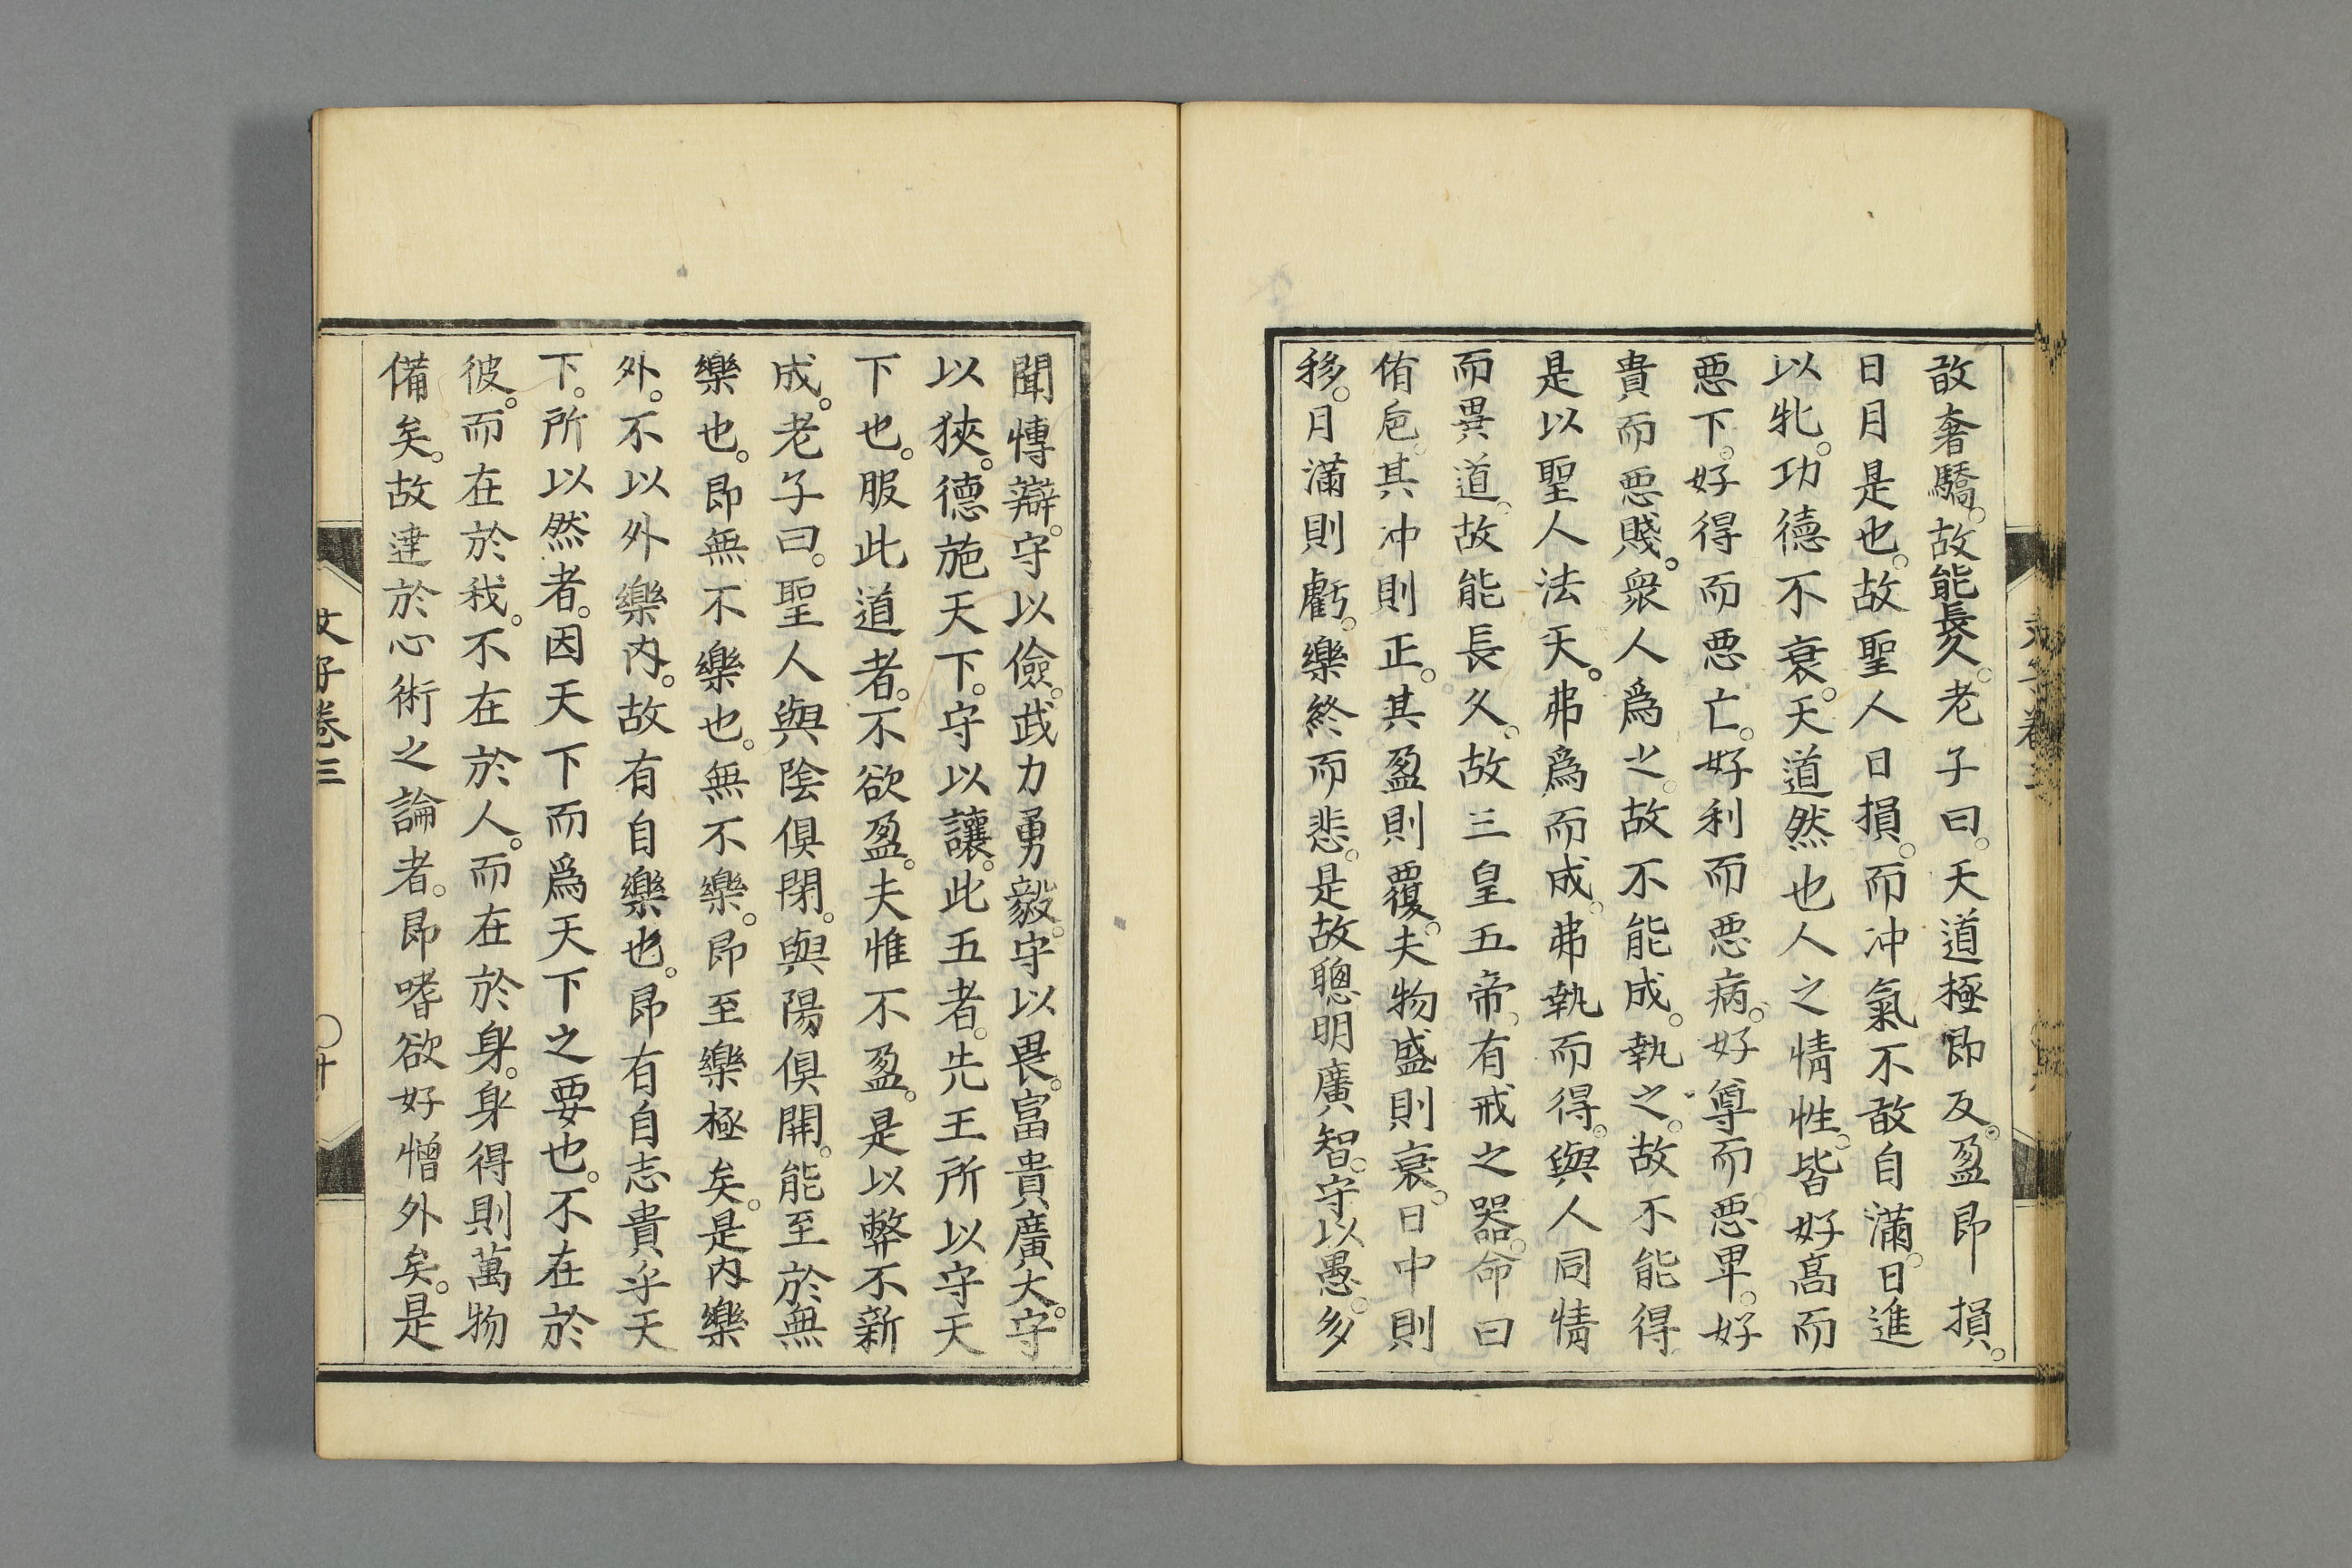 敢奢驕。故能長久。老子曰。天道極卽反。盈卽損。
日月是也。故聖人日損。而冲氣不敢自滿。日進
以牝。功德不衰。天道然也人之情性。皆好髙而
惡下。好得而惡亡。好利而惡病。好尊而惡卑。好
貴而惡賤。衆人爲之。故不能成。執之。故不能得
是以聖人法天。弗爲而成。弗執而得。與人同情
而異道。故能長久。故三皇五帝。有戒之器。命曰
侑卮。其冲則正。其盈則覆。夫物盛則衰。日中則
移。月滿則虧。樂終而悲。是故聰明廣智。守以愚。多
聞博辯。守以儉。武力勇毅。守以畏。富貴廣大。守
以狹。德施天下。守以讓。此五者。先王所以守天
下也。服此道者。不欲盈。夫惟不盈。是以弊不新
成。老子曰。聖人與陰俱閉。與陽俱開。能至於無
樂也。卽無不樂也。無不樂。卽至樂極矣。是内樂
外。不以外樂内。故有自樂也。卽有自志貴乎天
下。所以然者。因天下而爲天下之要也。不在於
彼。而在於我。不在於人。而在於身。身得則萬物
備矣。故達於心術之論者。卽嗜欲好憎外矣。是
文子卷三
〇十